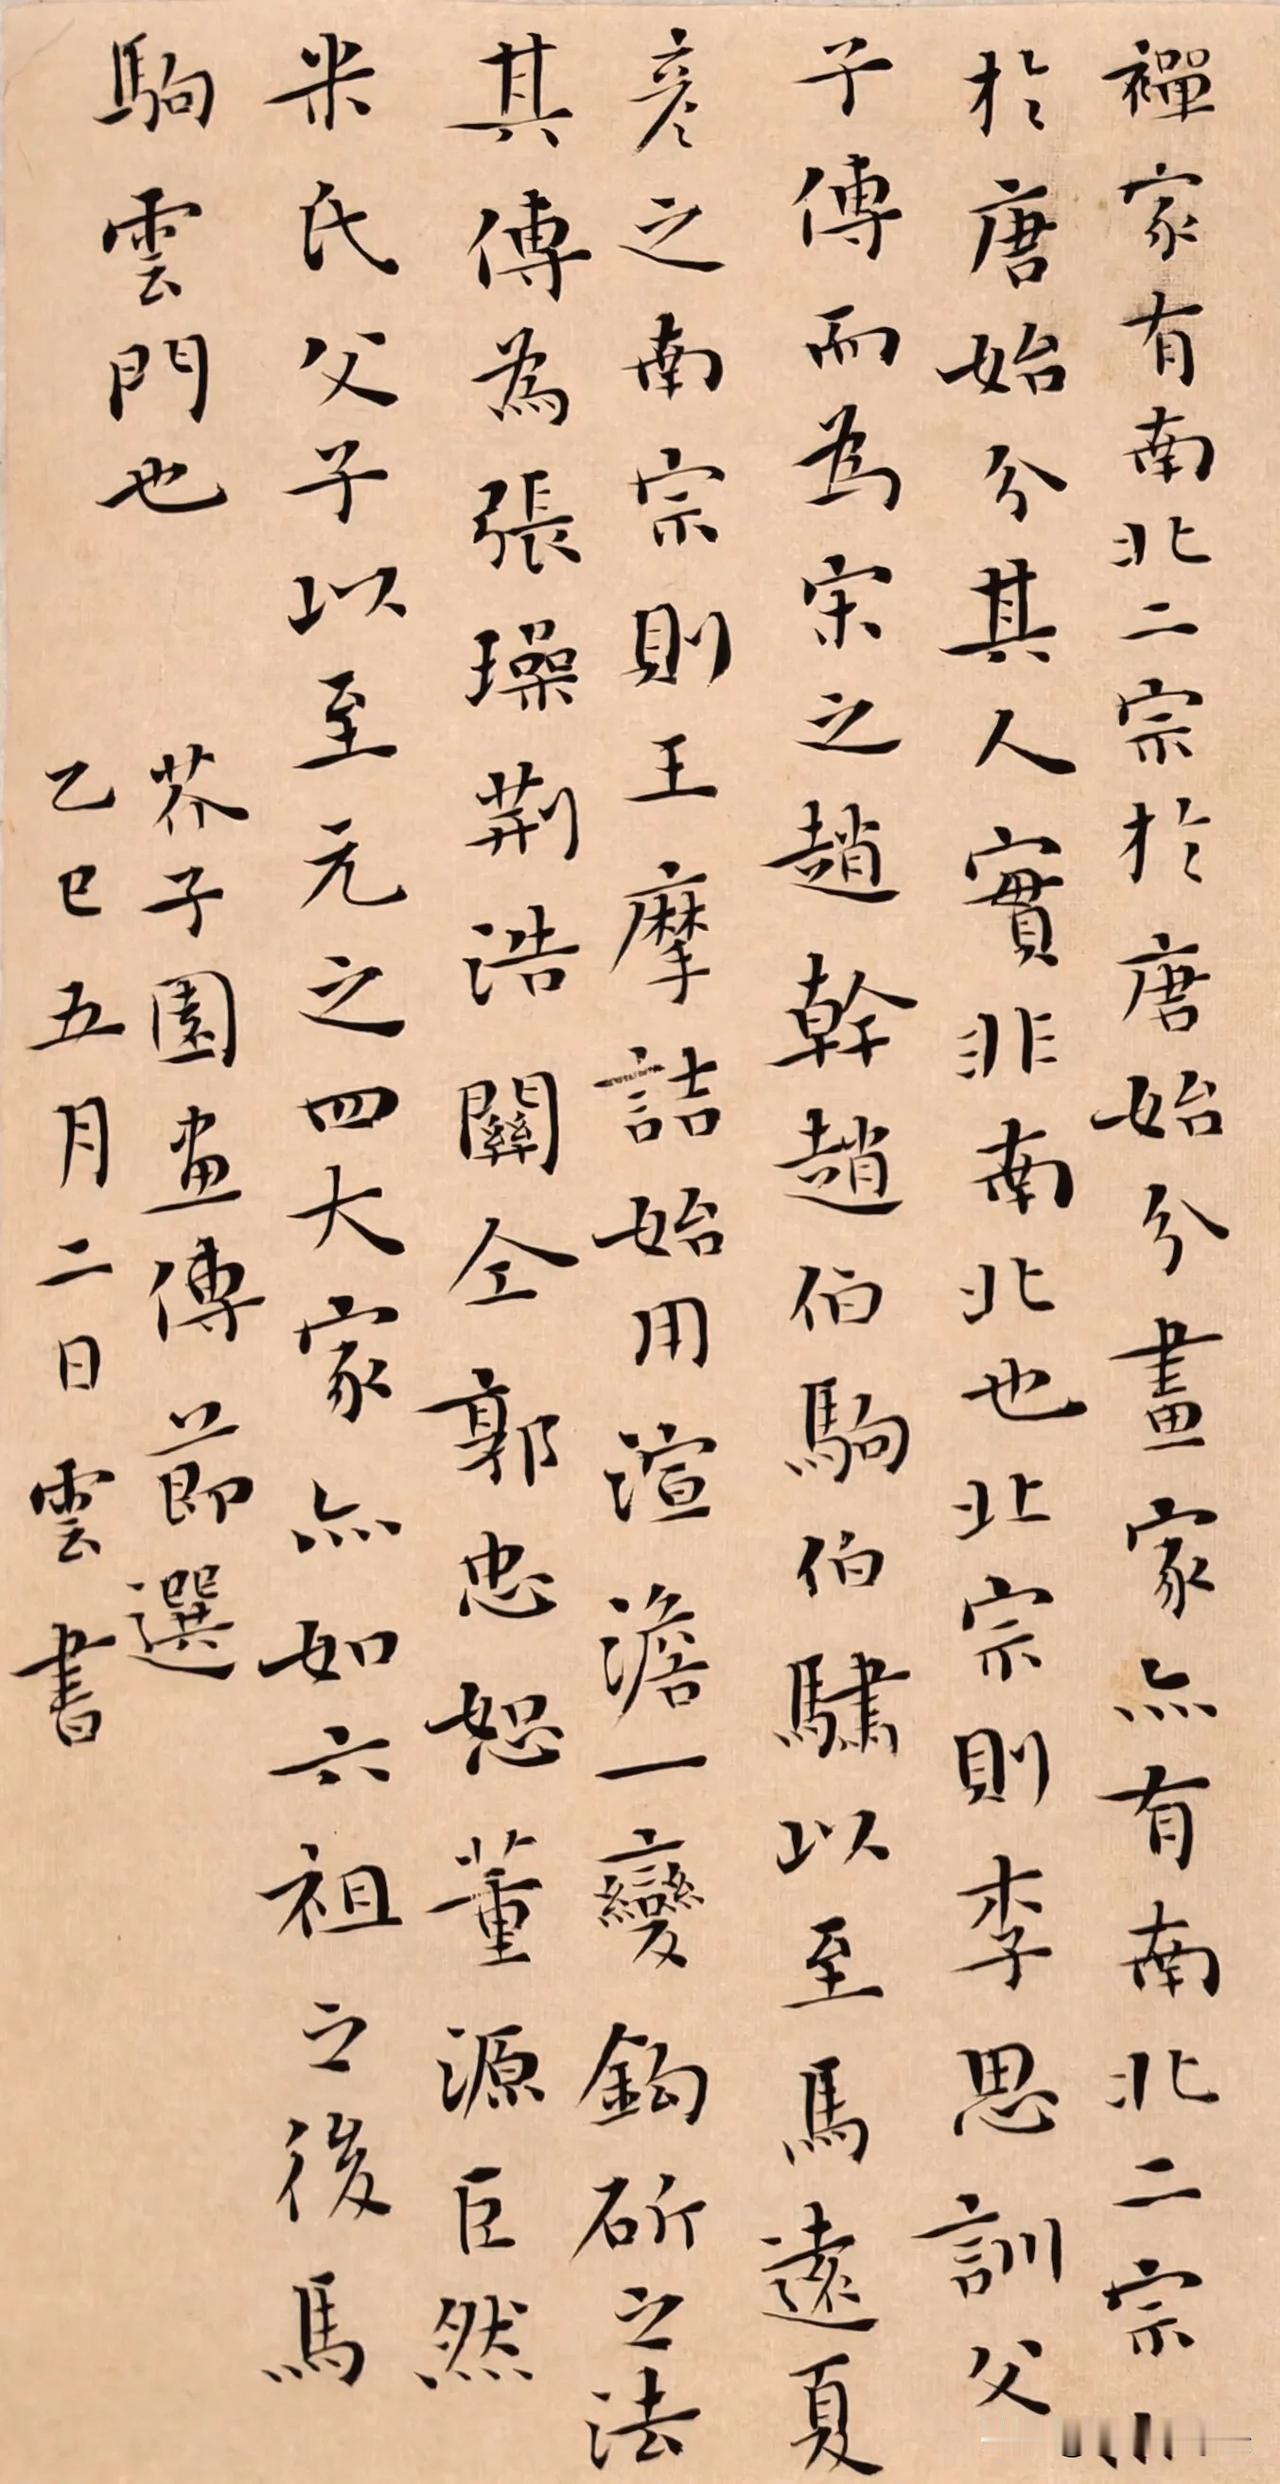 禪家有南北二宗於唐始分畫家亦有南北二宗
於唐始分其人實非南北也北宗則李思訓父
子傳而為宋之趙幹趙伯駒伯驌以至馬遠夏
彥之南宗則王摩詰始用渲澹一變鈎斫之法
其傳為張璪荊浩關仝郭忠恕董源巨然
米氏父子以至元之四大家亦如六祖之後馬
駒雲門也
芥子園画傳節選
乙巳五月二日雲書